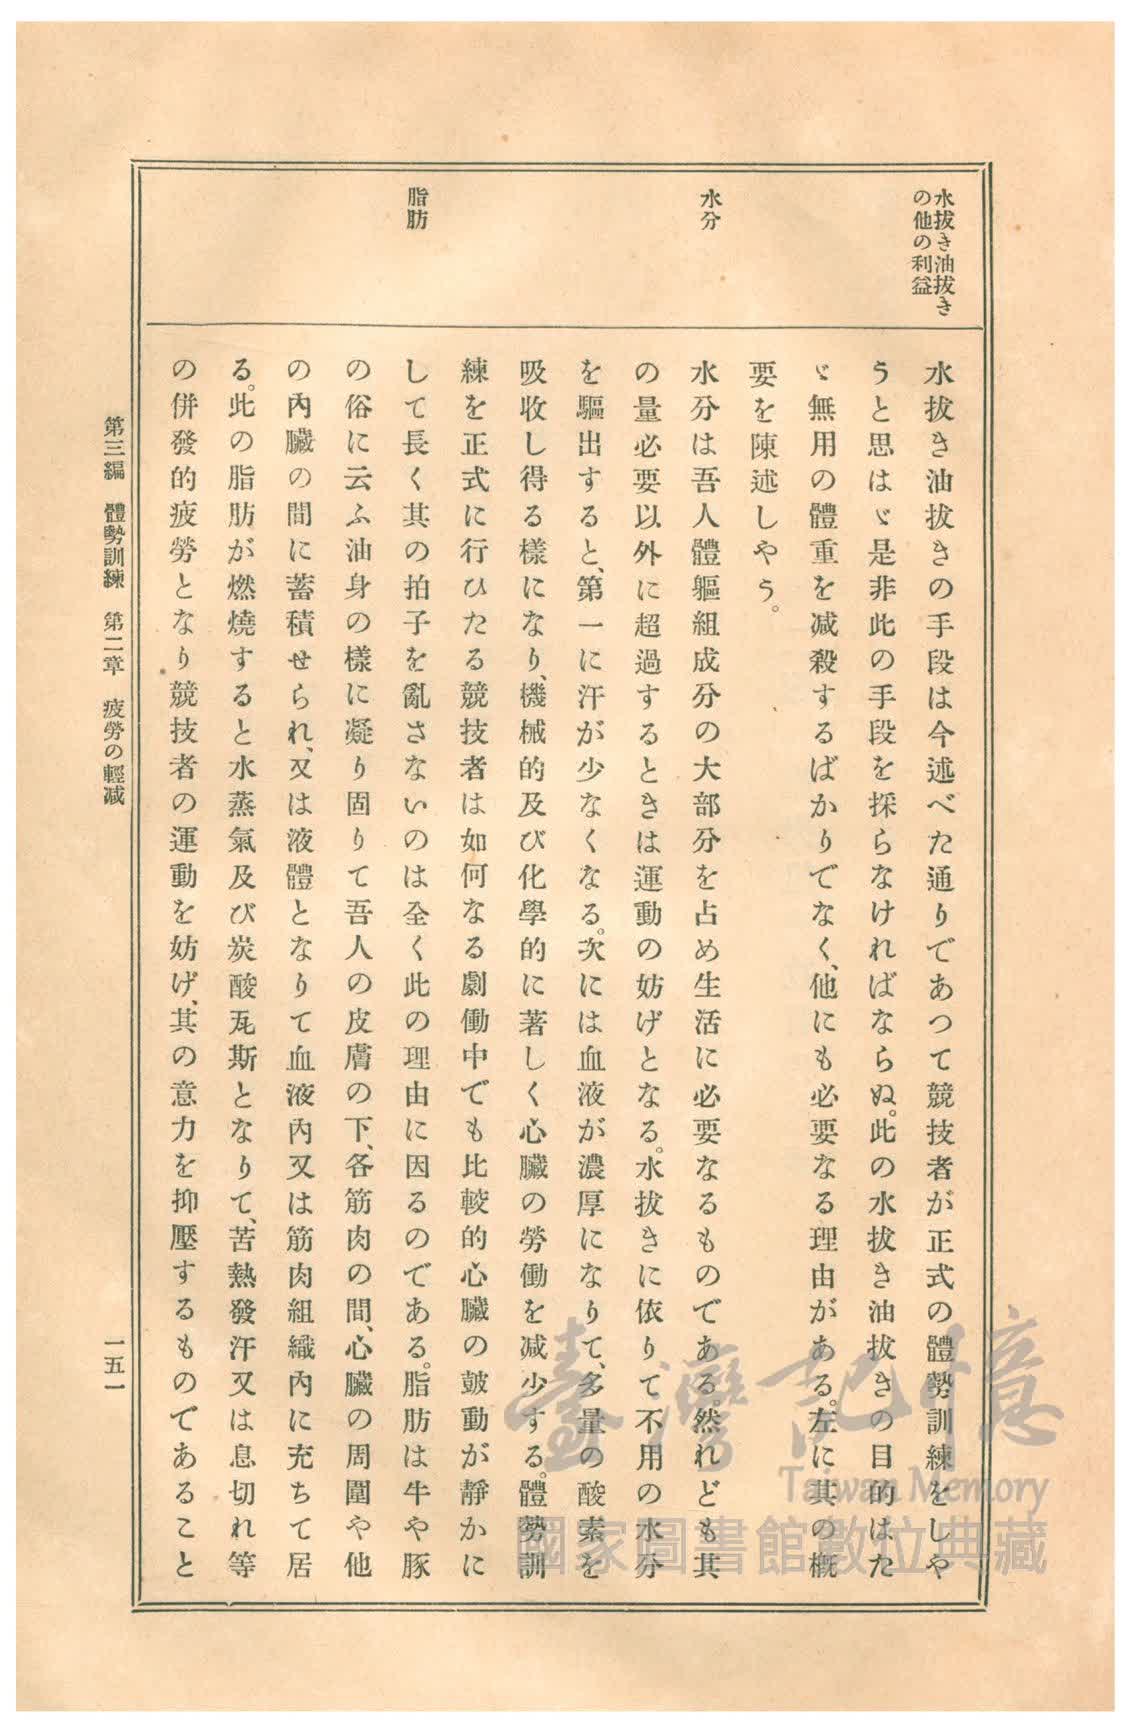 水拔き油拔き
の他の利益
水分
脂肪
水拔き油拔きの手段は今述べた通りであつて競技者が正式の體勢訓練をしや
うと思はゞ是非此の手段を採らなければならぬ。此の水拔き油拔きの目的はた
ゞ無用の體重を減殺するばかりでなく、他にも必要なる理由がある。左に其の概
要を陳述しやう。
水分は吾人體軀組成分の大部分を占め生活に必要なるものである。然れども其
の量必要以外に超過するときは運動の妨げとなる。水拔きに依りて不用の水分
を驅出すると、第一に汗が少なくなる。次には血液が濃厚になりて、多量の酸素を
吸收し得る樣になり、機械的及び化學的に著しく心臟の勞働を減少する。體勢訓
練を正式に行ひたる競技者は如何なる劇働中でも比較的心臟の皷動が靜かに
して長く其の拍子を亂さないのは全く此の理由に因るのである。脂肪は牛や豚
の俗に云ふ油身の樣に凝り固りて吾人の皮膚の下、各筋肉の間、心臟の周圍や他
の內臟の間に蓄積せられ、又は液體となりて血液內又は筋肉組織內に充ちて居
る。此の脂肪が燃燒すると水蒸氣及び炭酸瓦斯となりて、苦熱發汗又は息切れ等
の併發的疲勞となり競技者の運動を妨げ、其の意力を抑壓するものであること
第三編　體勢訓練　第二章　疲勞の輕減
一五一
臺灣記憶
Taiwan Memory
國家圖書館數位典藏